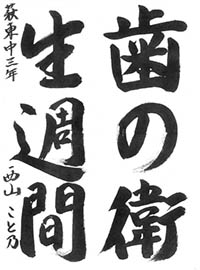 歯の衛
生週間
萩東中三年
西山こと乃